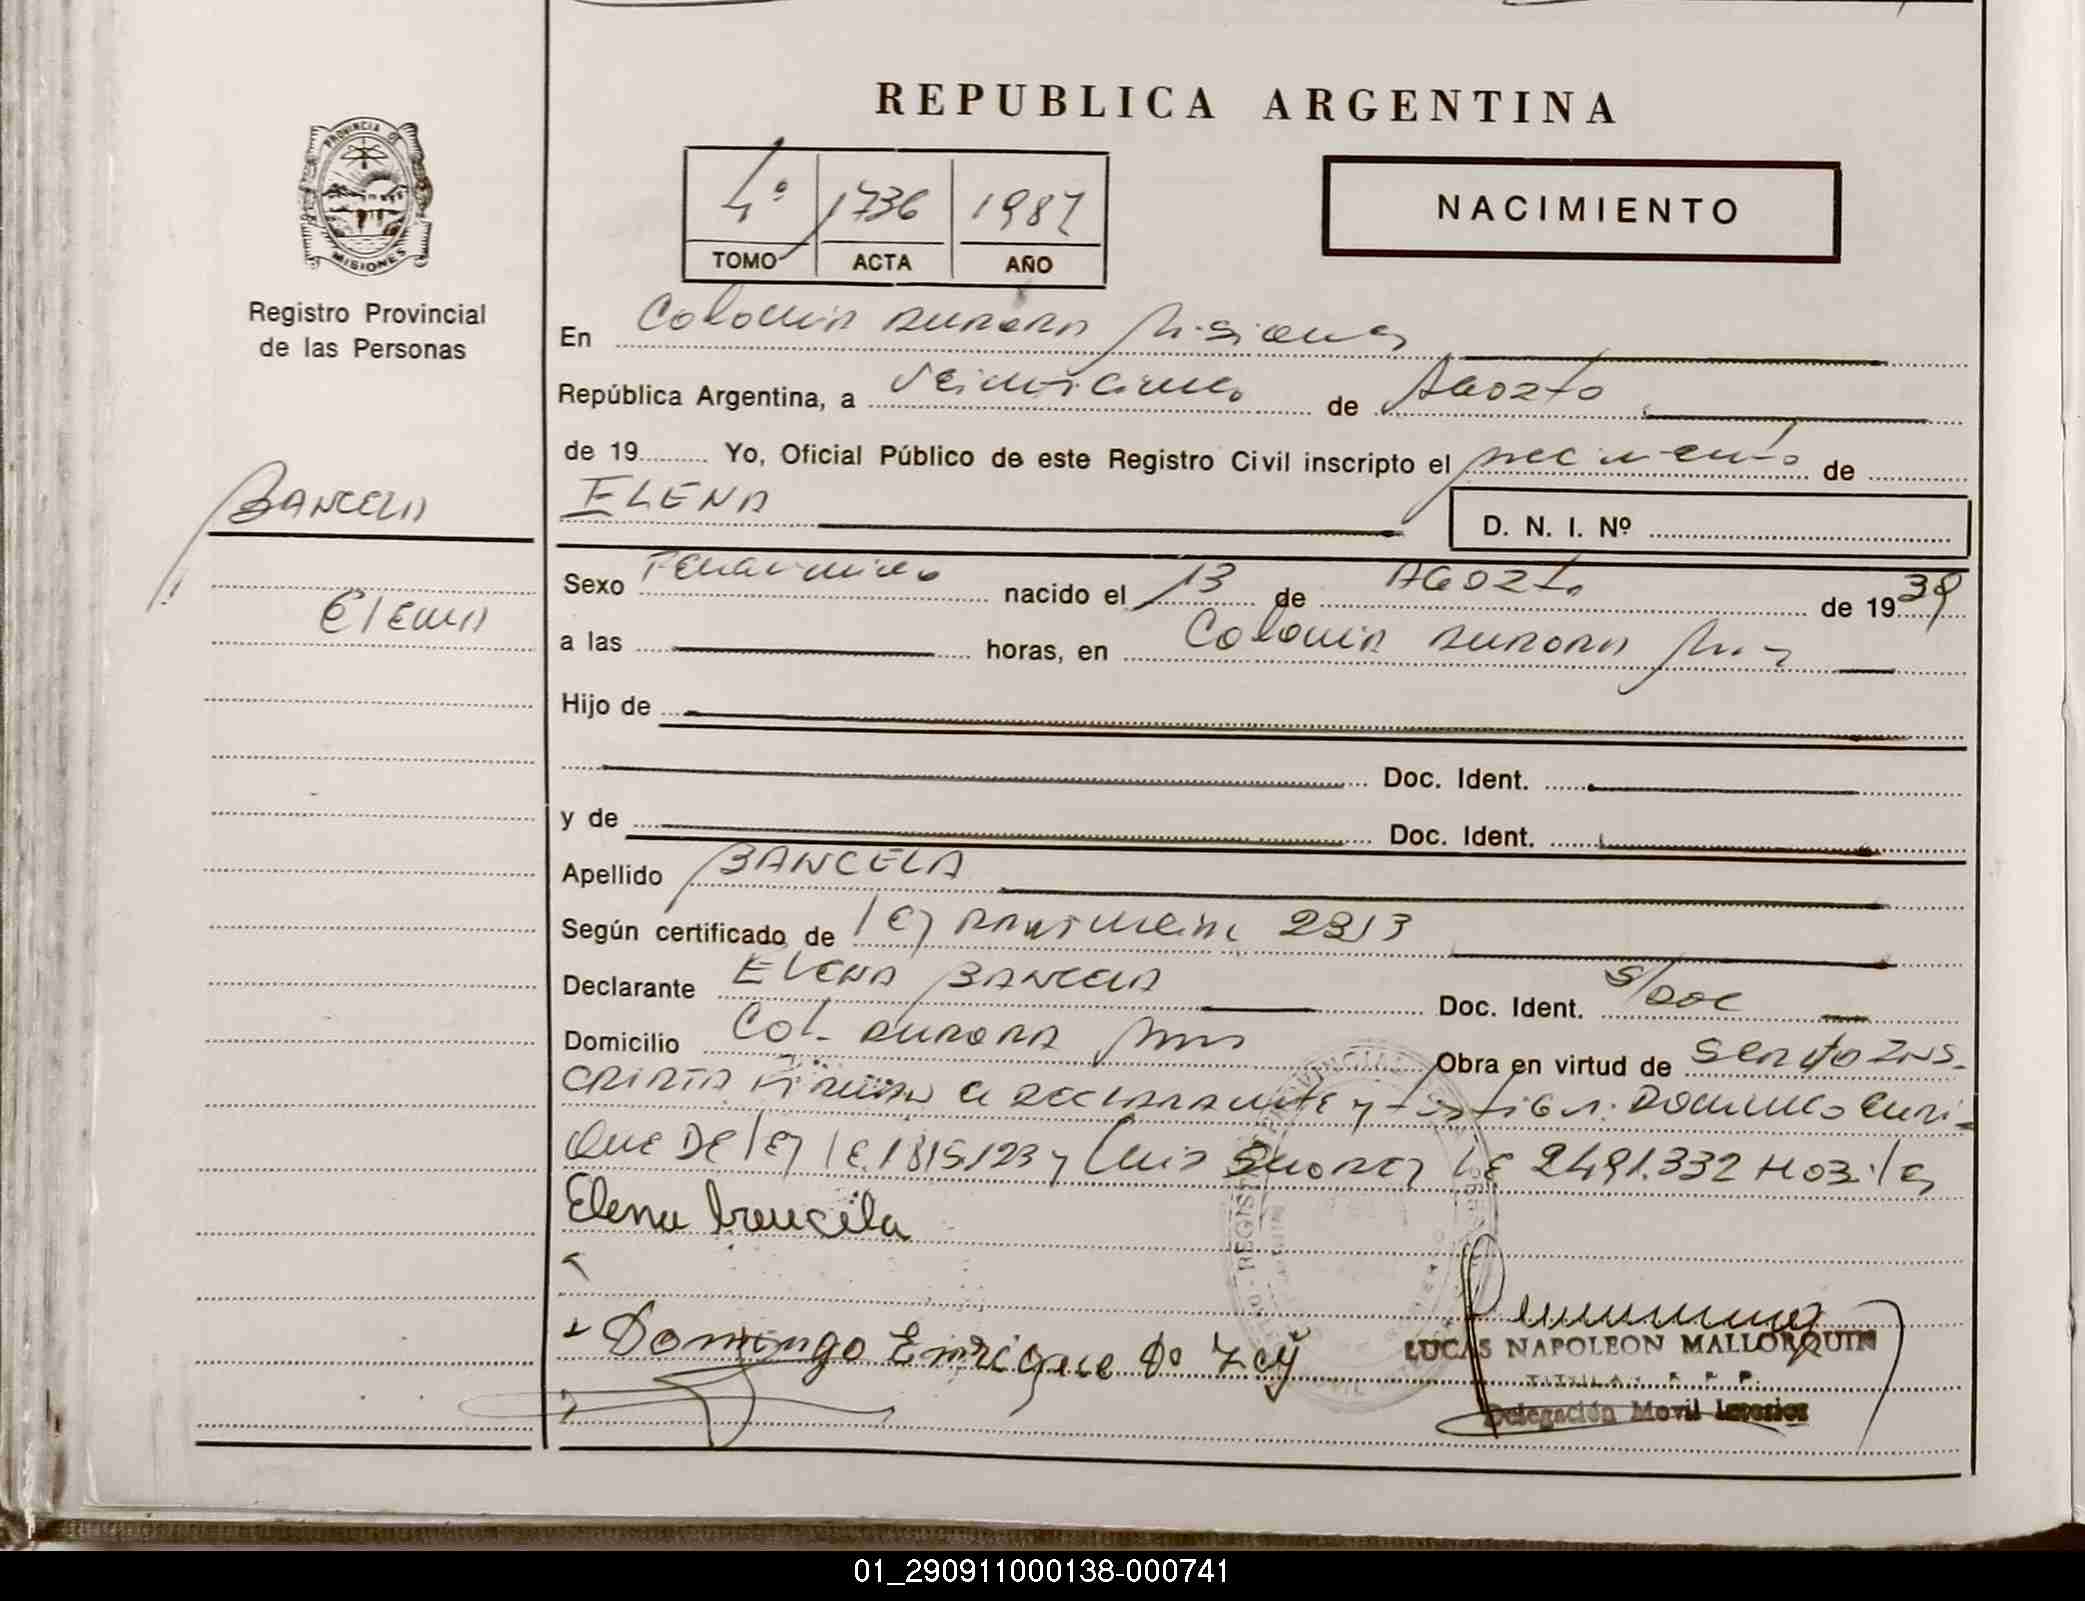 REPUBLICA ARGENTINA
PROVINCIA DE MISIONES
4º 1736 1987
TOMO ACTA AÑO
NACIMIENTO
Registro Provincial
de las Personas
En Colonia Aurora Misiones
República Argentina, a Veinticinco de Agozto
de 19 Yo, Oficial Público de este Registro Civil inscripto el nacimiento de
ELENA
D. N. I. Nº
BANCELA
Elena
Sexo Femenino nacido el 13 de Agozto de 1939
a las horas, en Colonia Aurora Mis
Hijo de
Doc. Ident.
y de Doc. Ident.
Apellido BANCELA
Según certificado de ley 2813
Declarante ELENA BANCELA Doc. Ident. S/DOC
Domicilio Col. Aurora Mns Obra en virtud de Ser ins-
cripta Firman la declarante y testigos: Domingo Enri-
que De ley l.E. 1815123 y Luis Suarez l E 2491.332 Hoziles
Elena bancela
Domingo Enrique De Ley
LUCAS NAPOLEON MALLORQUIN
TITULAR R. P. P.
Delegación Movil Interior
01_290911000138-000741